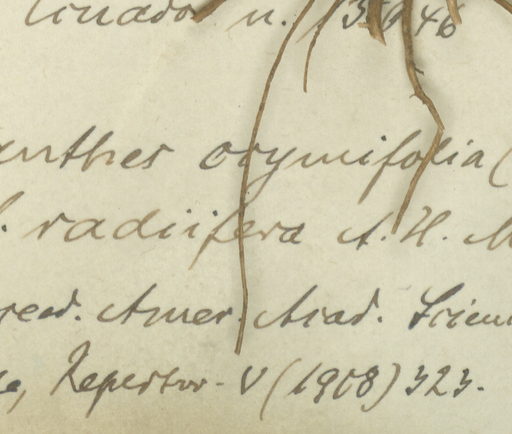 Ecuador n. 13646
anthes ocymifolia (
f. radiifera A. H. M
reed. Amer. Acad. Scienc
se, Repertor. V (1908) 323.